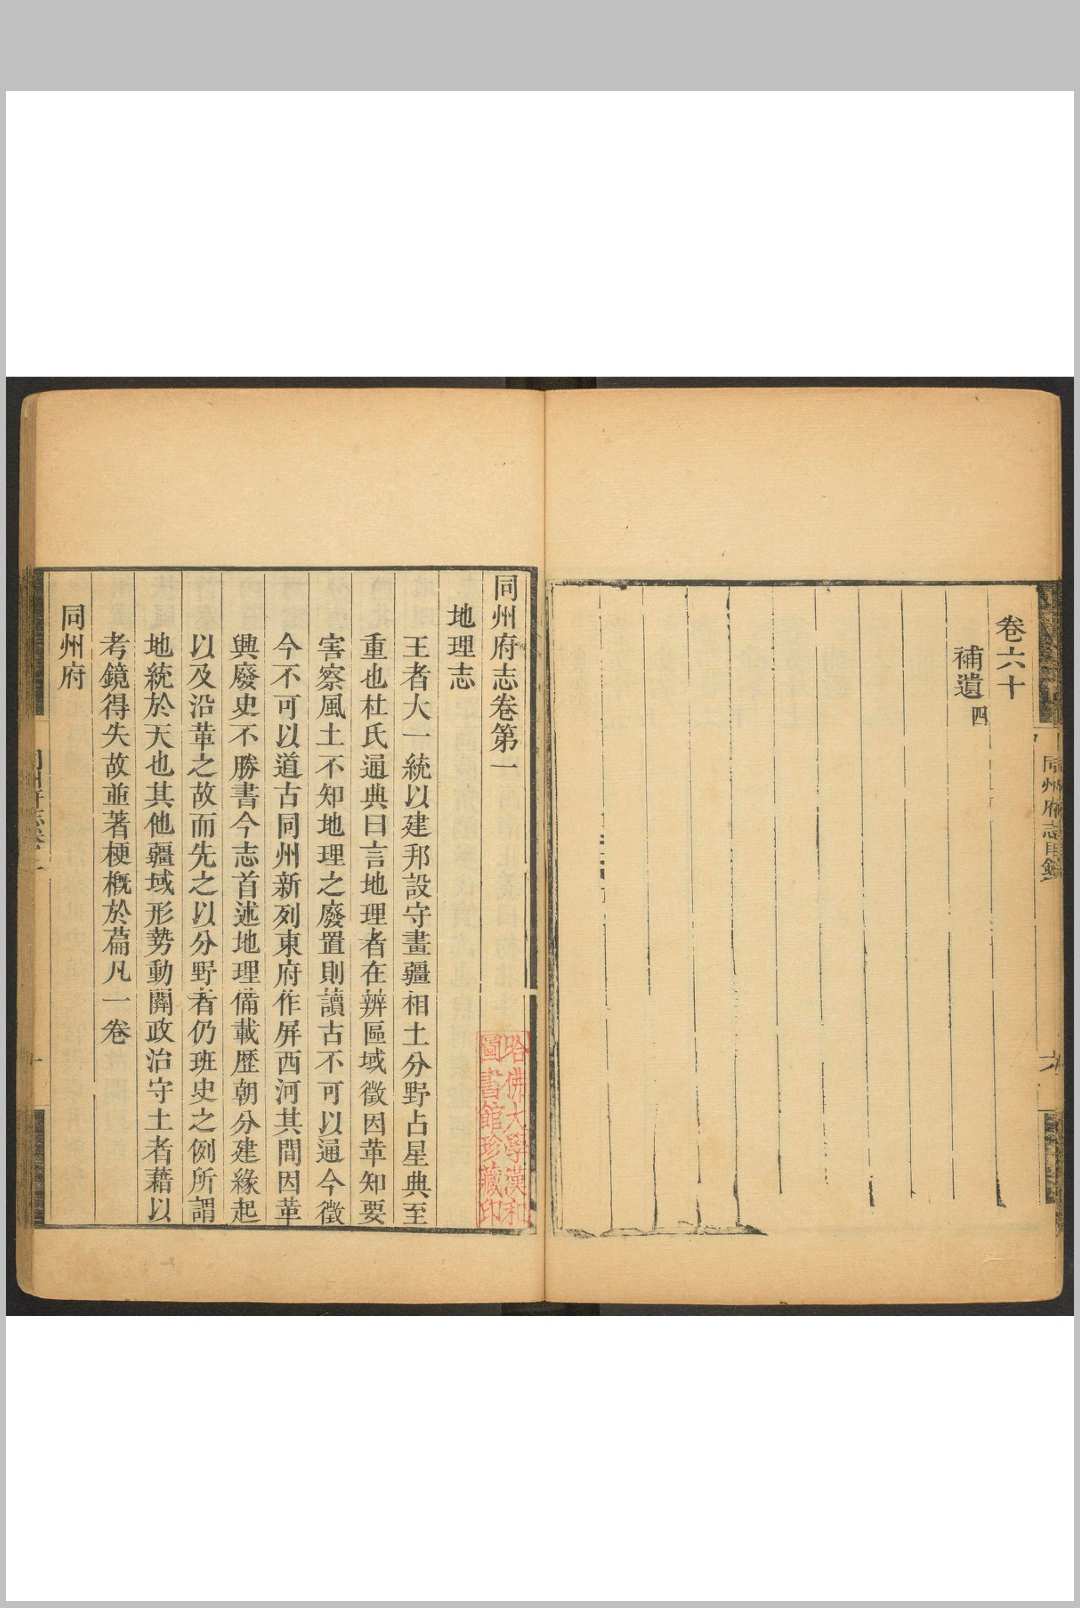 卷六十
補遺四
同州府志目錄
同州府志卷第一
地理志
王者大一統以建邦設守畫疆相土分野占星典至
重也杜氏通典曰言地理者在辨區域徵因革知要
害察風土不知地理之廢置則讀古不可以通今徵
今不可以道古同州新列東府作屏西河其間因革
興廢史不勝書今志首述地理備載歷朝分建緣起
以及沿革之故而先之以分野者仍班史之例所謂
地統於天也其他疆域形勢動關政治守土者藉以
考鏡得失故並著梗概於篇凡一卷
同州府
哈佛大學漢和
圖書館珍藏印